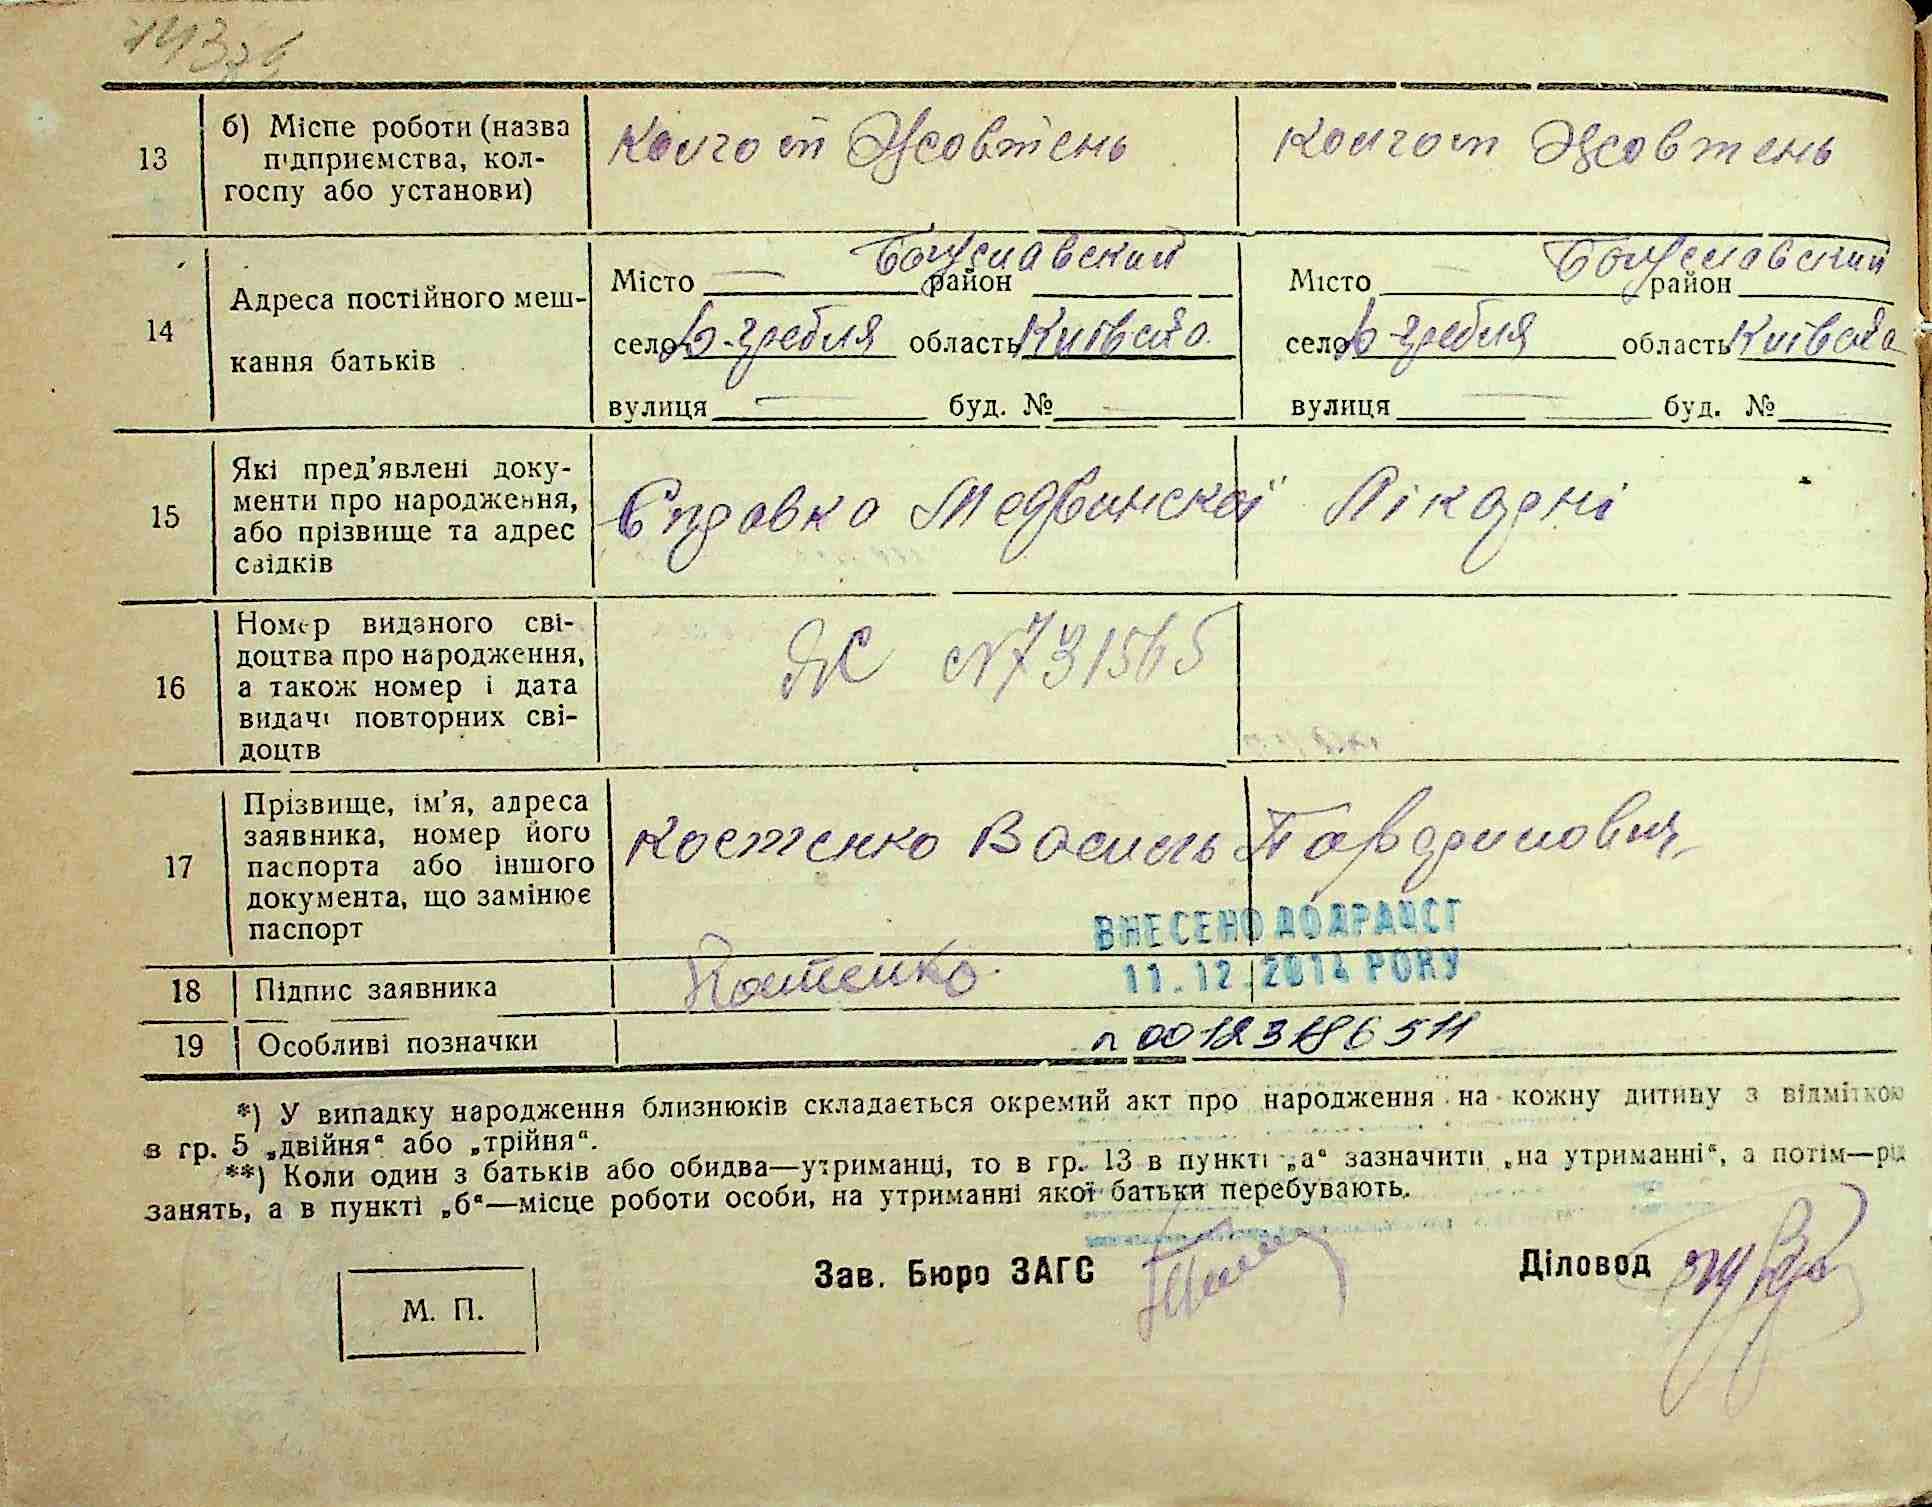 13
б) Місце роботи (назва
підприємства, кол-
госпу або установи)
Колгосп Жовтень
Колгосп Жовтень
14
Адреса постійного меш-
кання батьків
Місто — Богуславский район
село Б-Гребля область Київська
вулиця — буд. № —
Місто Богуславский район
село Б-Гребля область Київська
вулиця — буд. №
15
Які пред'явлені доку-
менти про народження,
або прізвище та адрес
свідків
Справка Медвинскої Лікарні
16
Номер виданого сві-
доцтва про народження,
а також номер і дата
видачі повторних сві-
доцтв
ЯС №731565
17
Прізвище, ім'я, адреса
заявника, номер його
паспорта або іншого
документа, що замінює
паспорт
Костенко Василь
ВНЕСЕНО ДО ДРАЦСГ
11.12.2014 РОКУ
18
Підпис заявника
Костенко
19
Особливі позначки
n 00123186511
*) У випадку народження близнюків складається окремий акт про народження на кожну дитину з відміткою
в гр. 5 „двійня“ або „трійня“.
**) Коли один з батьків або обидва—утриманці, то в гр. 13 в пункті „а“ зазначити „на утриманні“, а потім—рід
занять, а в пункті „б“—місце роботи особи, на утриманні якої батьки перебувають.
Зав. Бюро ЗАГС
Діловод
М. П.